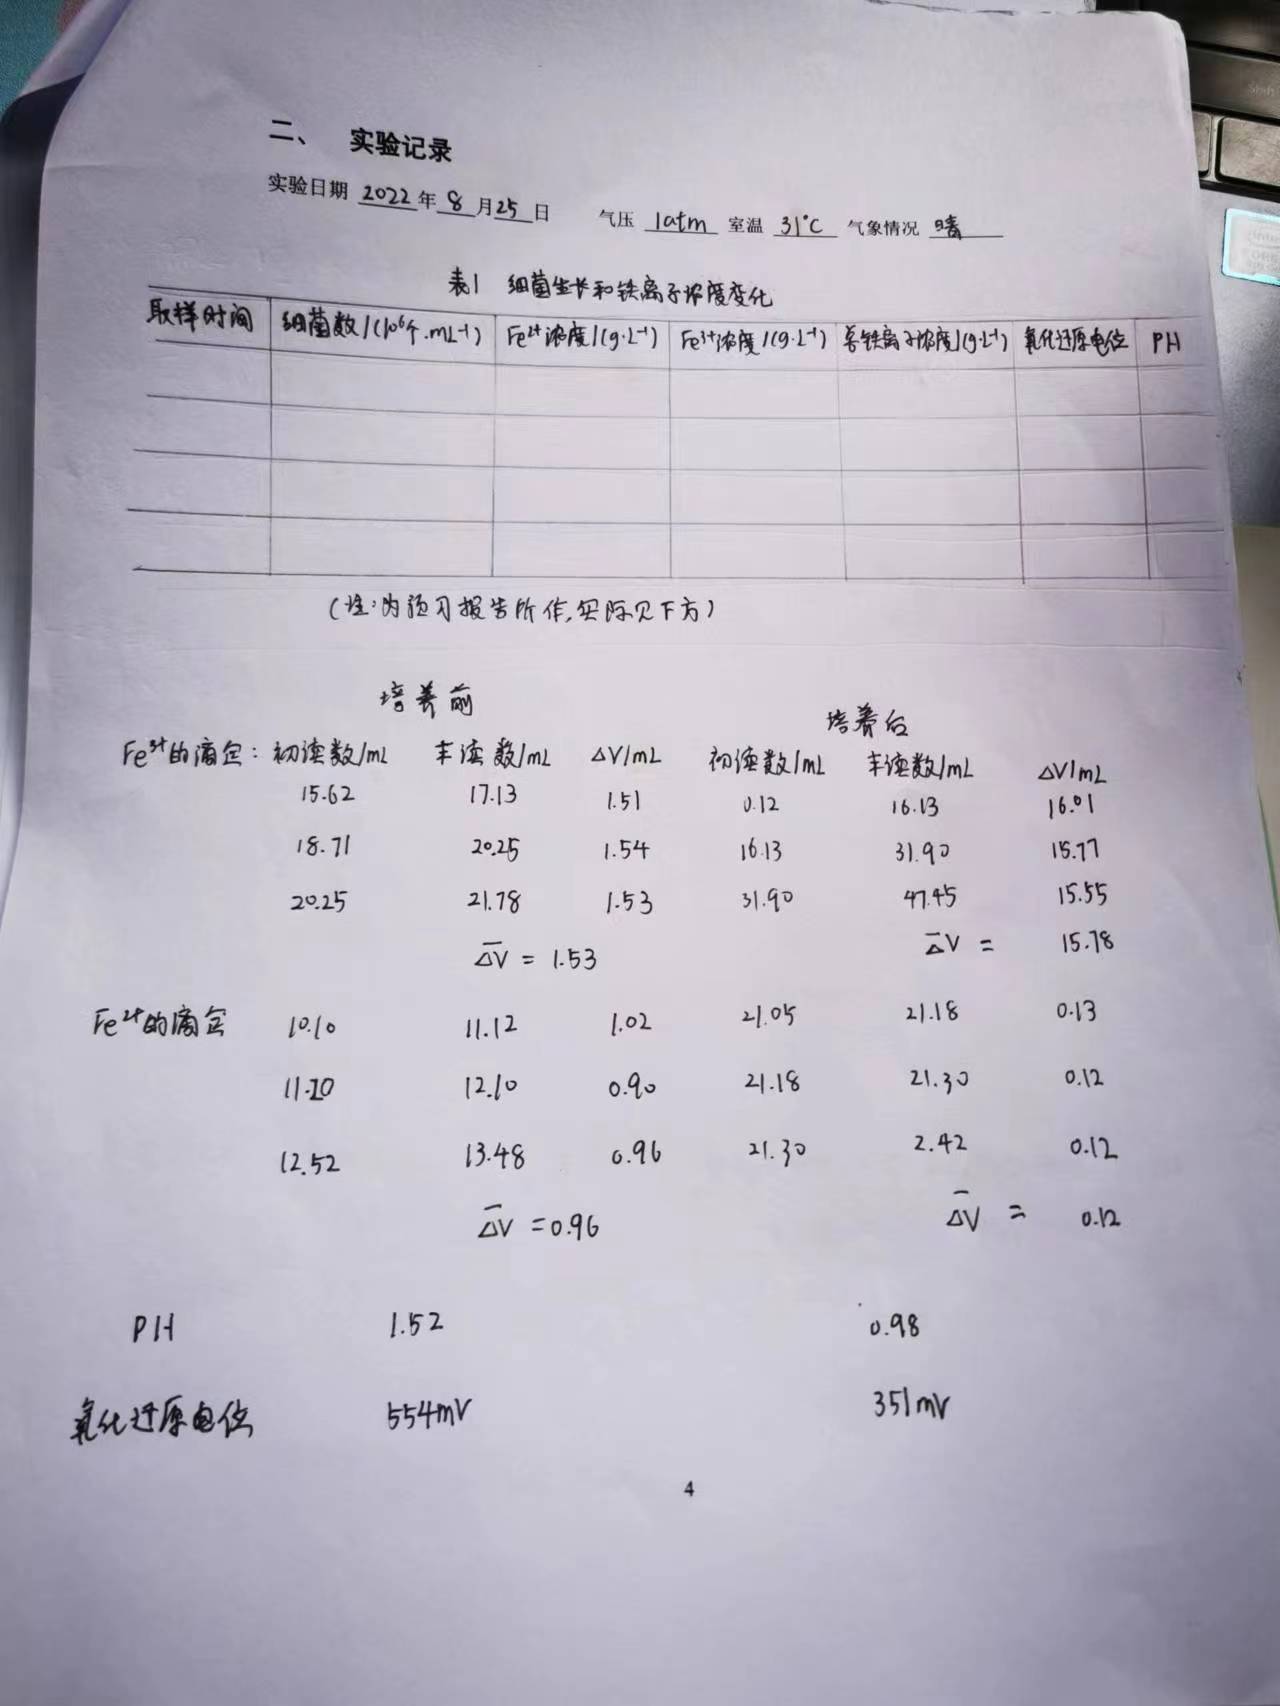 二、 实验记录
实验日期 2022 年 8 月 25 日 气压 1atm 室温 31℃ 气象情况 晴
表1 细菌生长和铁离子浓度变化
取样时间 细菌数/(10⁶个·mL⁻¹) Fe²⁺浓度/(g·L⁻¹) Fe³⁺浓度/(g·L⁻¹) 总铁离子浓度/(g·L⁻¹) 氧化还原电位 PH
(注:为预习报告所作,实际见下方)
培养前 培养后
Fe³⁺的滴定: 初读数/mL 末读数/mL ΔV/mL 初读数/mL 末读数/mL ΔV/mL
15.62 17.13 1.51 0.12 16.13 16.01
18.71 20.25 1.54 16.13 31.90 15.77
20.25 21.78 1.53 31.90 47.45 15.55
Δ̅V = 1.53 Δ̅V = 15.78
Fe²⁺的滴定 10.10 11.12 1.02 21.05 21.18 0.13
11.20 12.10 0.90 21.18 21.30 0.12
12.52 13.48 0.96 21.30 2.42 0.12
Δ̅V = 0.96 Δ̅V = 0.12
PH 1.52 0.98
氧化还原电位 554mV 351mV
4